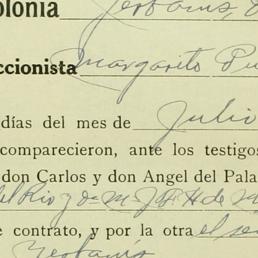 olonia Yerbanis,
ccionista Margarito
días del mes de Julio
comparecieron, ante los testigos
don Carlos y don Angel del Pala
del Rio y de M.
e contrato, y por la otra el se
Yerbanis